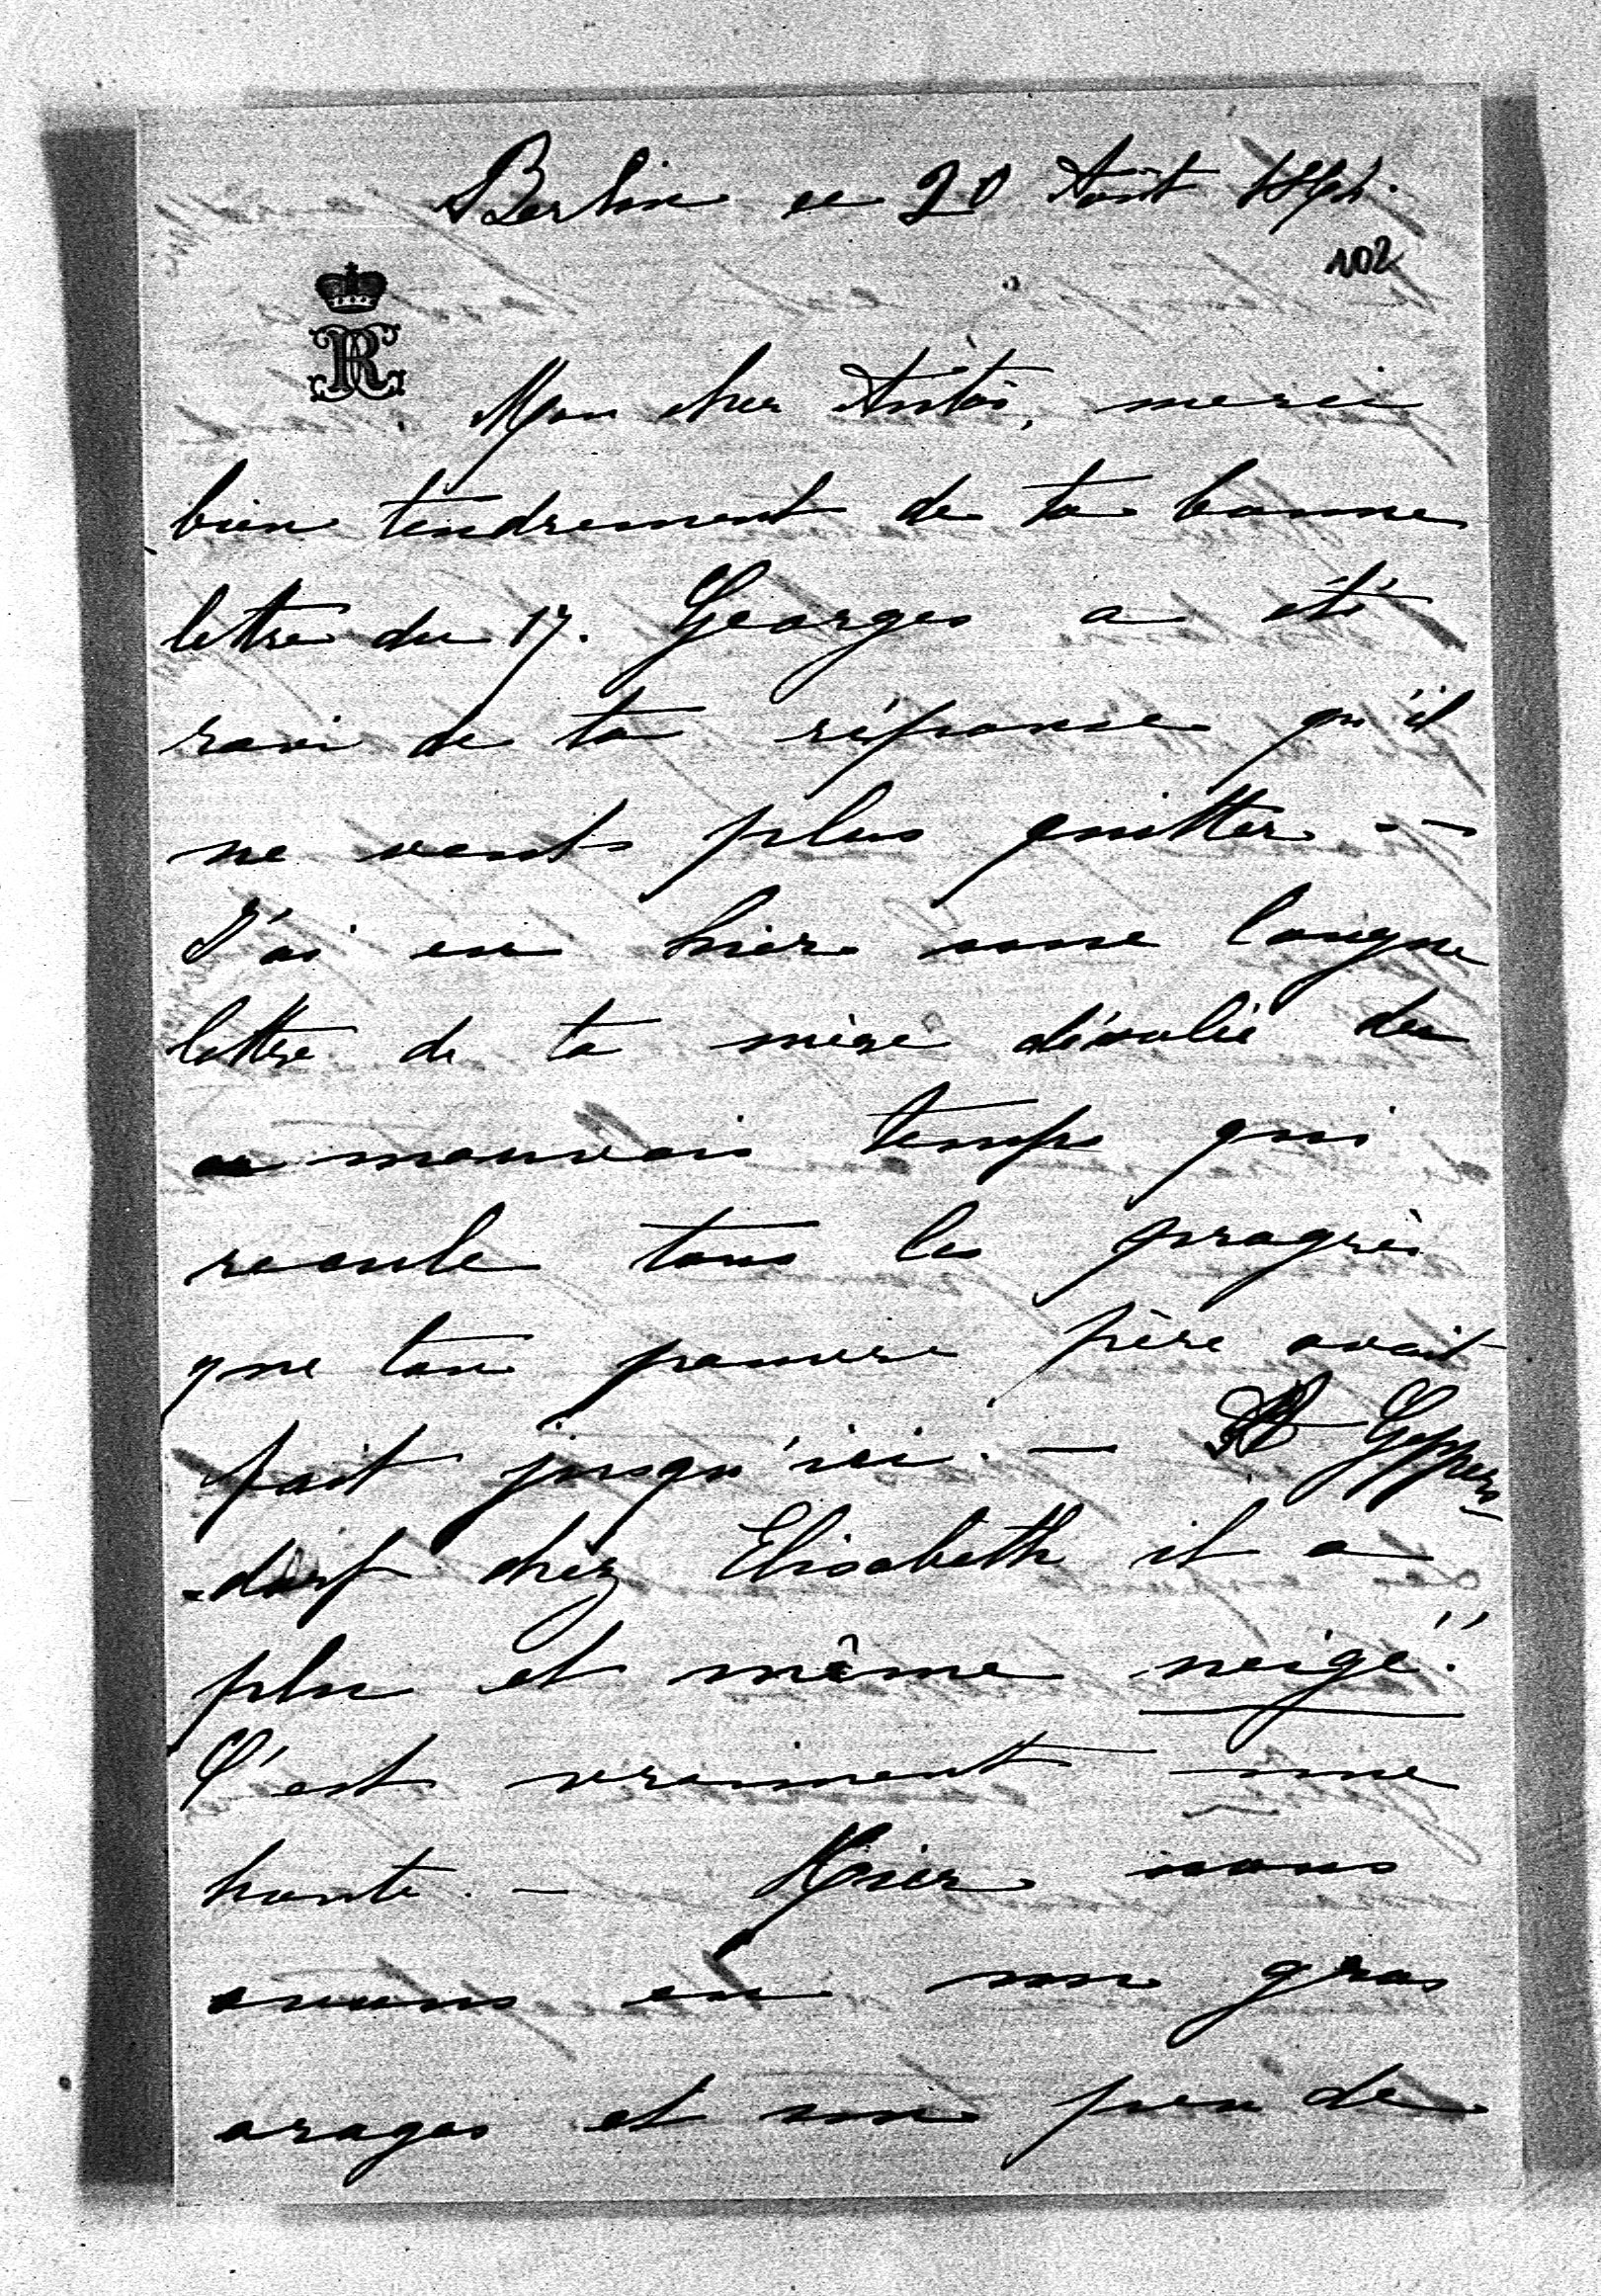 Berlin ce 20 Août
102
Mon cher Antoś, merci
bien tendrement de ta bonne
lettre du 17. Georges a été
ravi de ta réponse qu'il
ne veut plus quitter. —
J'ai eu hier une longue
lettre de ta mère désolée du
mauvais temps qui
recule tous les progrès
que ton pauvre père avait
fait jusqu'ici. — A Göppers
-dorf chez Elisabeth il a
plu et même neigé!
C'est vraiment une
honte. — Hier nous
avons eu un gros
orages et un peu de